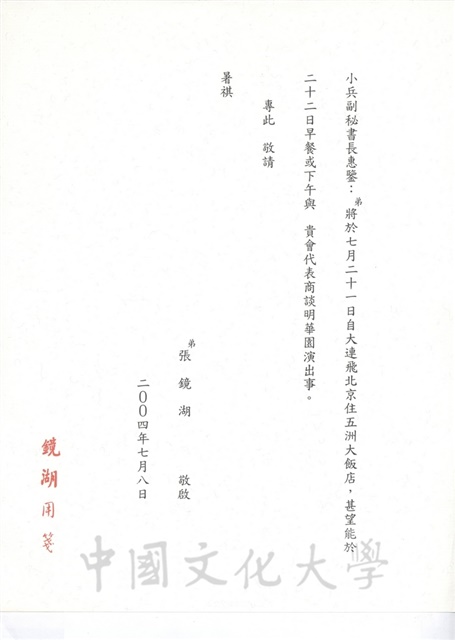 小兵副秘書長惠鑒：弟將於七月二十一日自大連飛北京住五洲大飯店，甚望能於
二十二日早餐或下午與　貴會代表商談明華園演出事。
專此　敬請
暑祺
弟張鏡湖　敬啟
二〇〇四年七月八日
鏡湖用箋
中國文化大學